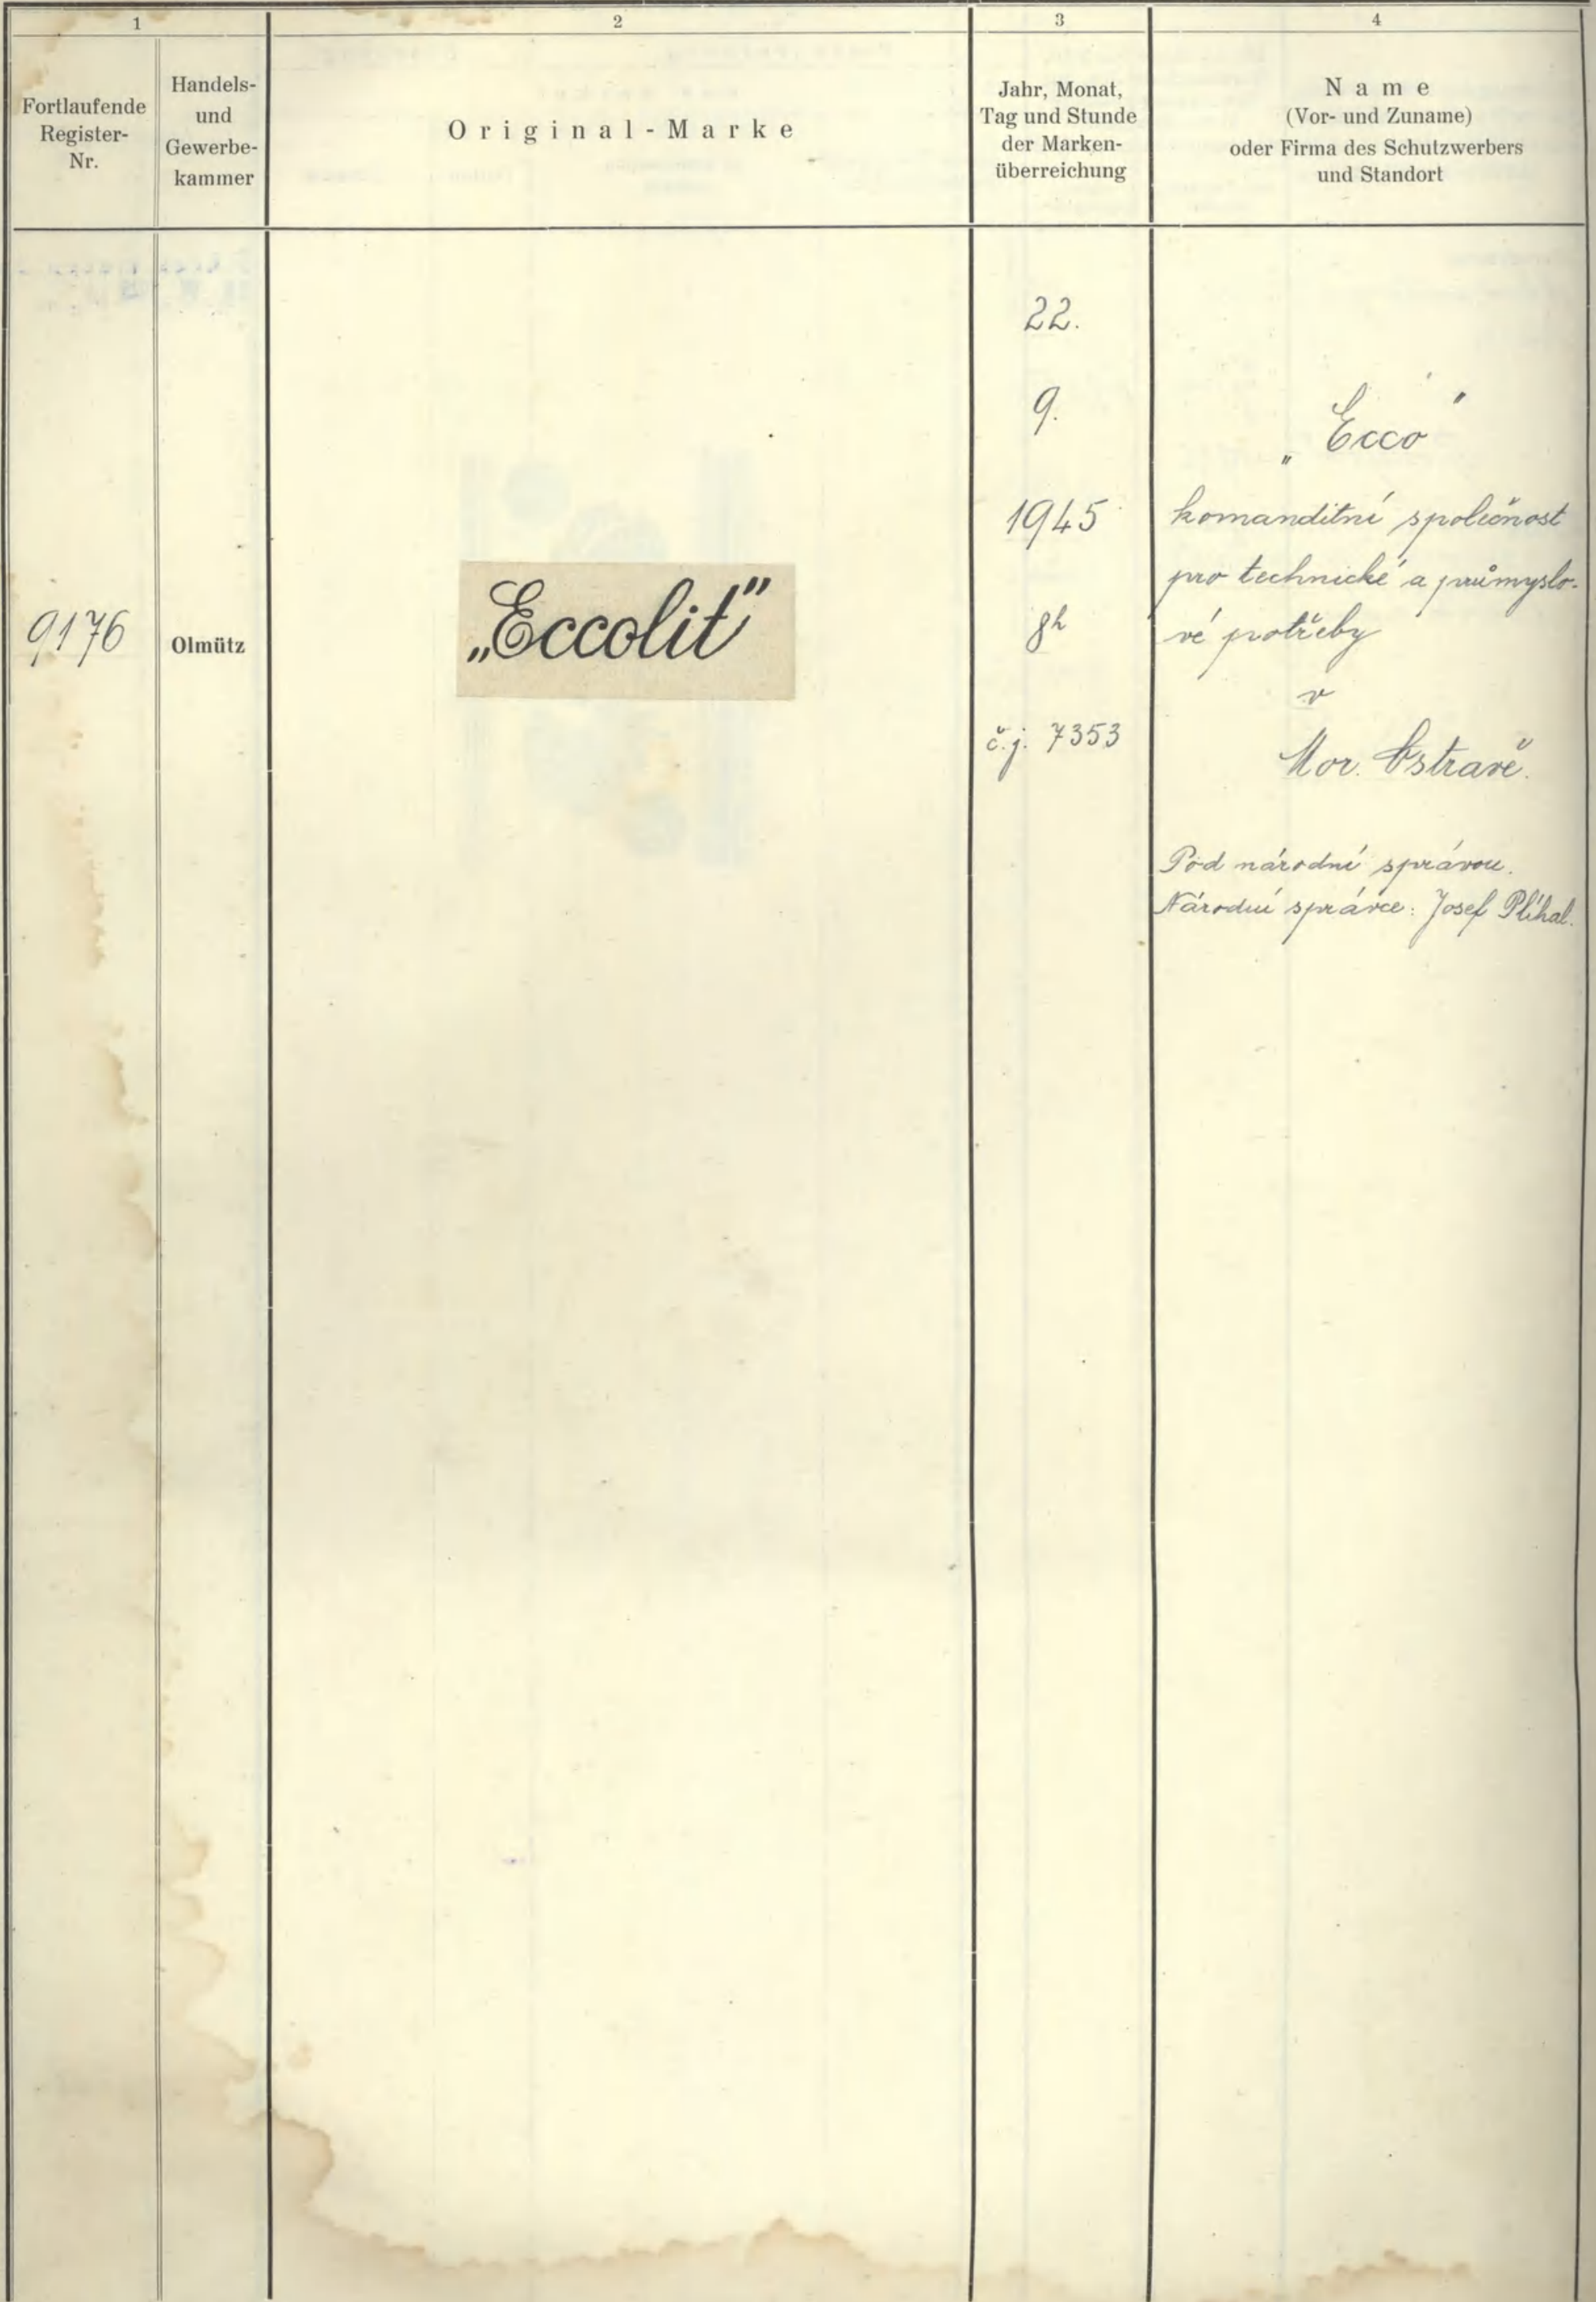 1
2
3
4
Fortlaufende
Register-
Nr.
Handels-
und
Gewerbe-
kammer
Original-Marke
Jahr, Monat,
Tag und Stunde
der Marken-
überreichung
Name
(Vor- und Zuname)
oder Firma des Schutzwerbers
und Standort
9176
Olmütz
„Eccolit"
22.
9.
1945
8h
č.j. 7353
„Ecco"
komanditní společnost
pro technické a průmyslo-
vé potřeby
v
Mor. Ostravě.
Pod národní správou.
Národní správce: Josef Plíhal.